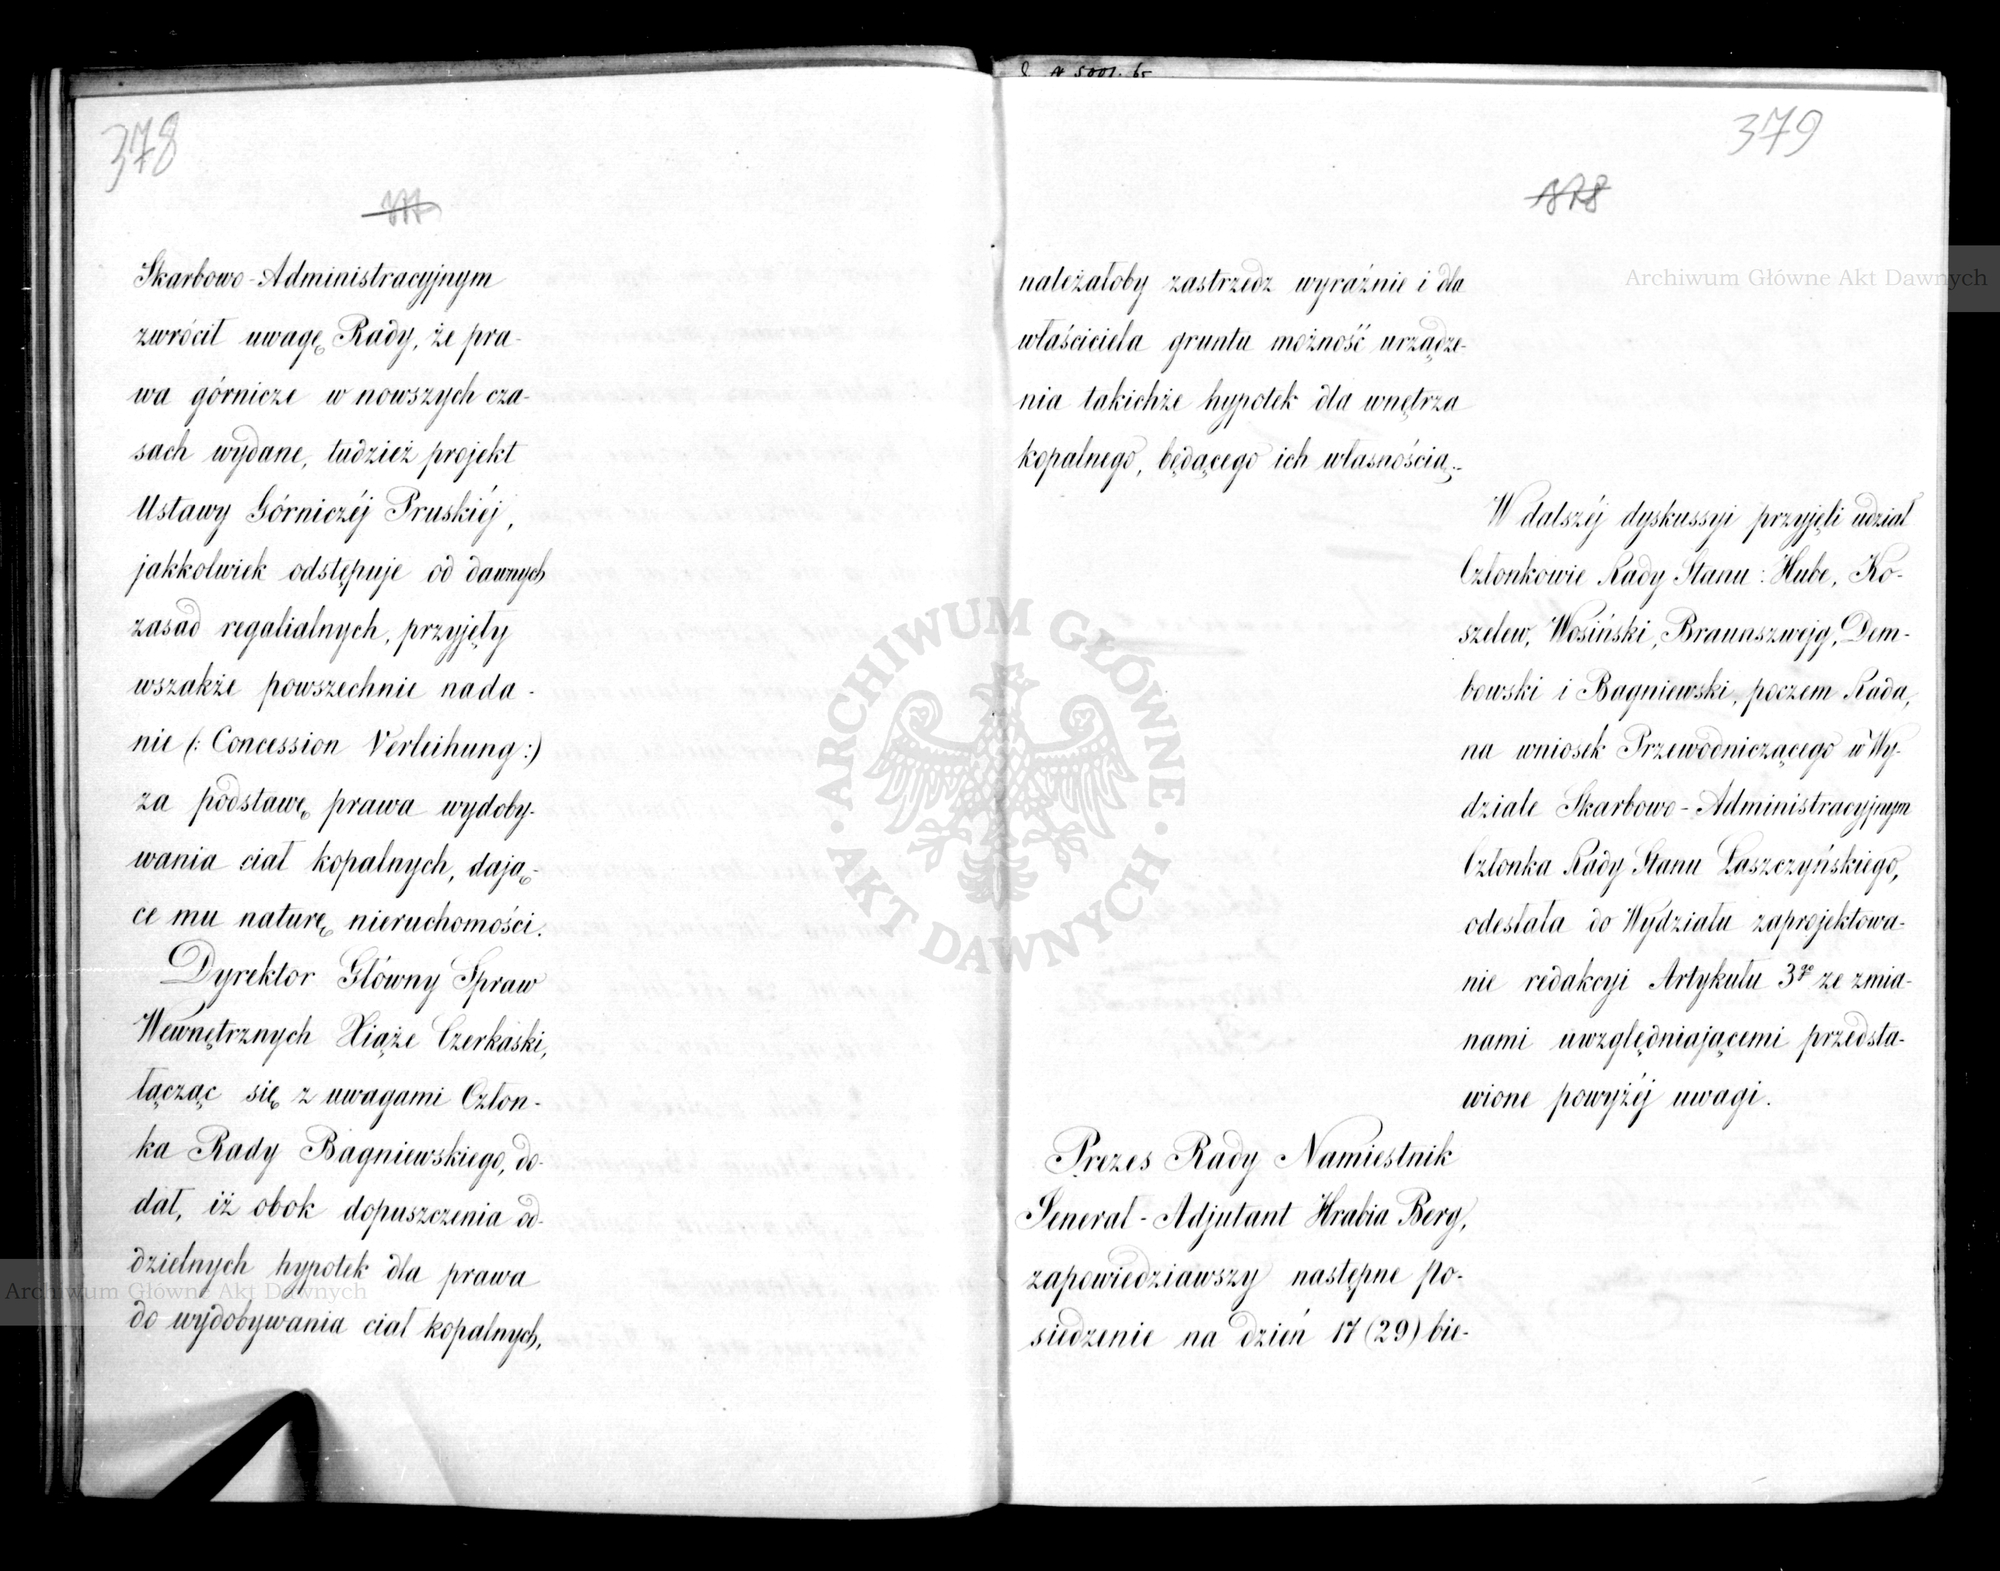 378
Skarbowo-Administracyjnym
zwrócił uwagę Rady, że pra-
wa górnicze w nowszych cza-
sach wydane, tudzież projekt
Ustawy Górniczéj Pruskiéj,
jakkolwiek odstępuje od dawnych
zasad regalialnych, przyjęły
wszakże powszechnie nada-
nie (: Concession Verleihung :)
za podstawę prawa wydoby-
wania ciał kopalnych, dają-
ce mu naturę nieruchomości.
Dyrektor Główny Spraw
Wewnętrznych Xiąże Czerkaski,
łącząc się z uwagami Człon-
ka Rady Bagniewskiego, do-
dał, iż obok dopuszczenia od-
dzielnych hypotek dla prawa
do wydobywania ciał kopalnych,
379
378
należałoby zastrzedz wyraźnie i dla
właściciela gruntu możność urządze-
nia takichże hypotek dla wnętrza
kopalnego, będącego ich własnością.-
W dalszéj dyskussyi przyjęli udział
Członkowie Rady Stanu: Hube, Ko-
szelew, Wosiński, Braunszwejg, Dem-
bowski i Bagniewski, poczem Rada,
na wniosek Przewodniczącego w Wy-
dziale Skarbowo-Administracyjnym
Członka Rady Stanu Łaszczyńskiego,
odesłała do Wydziału zaprojektowa-
nie redakcyi Artykułu 3go ze zmia-
nami uwzględniającemi przedsta-
wione powyżéj uwagi.
Prezes Rady Namiestnik
Jenerał-Adjutant Hrabia Berg,
zapowiedziawszy następne po-
siedzenie na dzień 17 (29) bie-
Archiwum Główne Akt Dawnych
ARCHIWUM GŁÓWNE
AKT DAWNYCH
Archiwum Główne Akt Dawnych